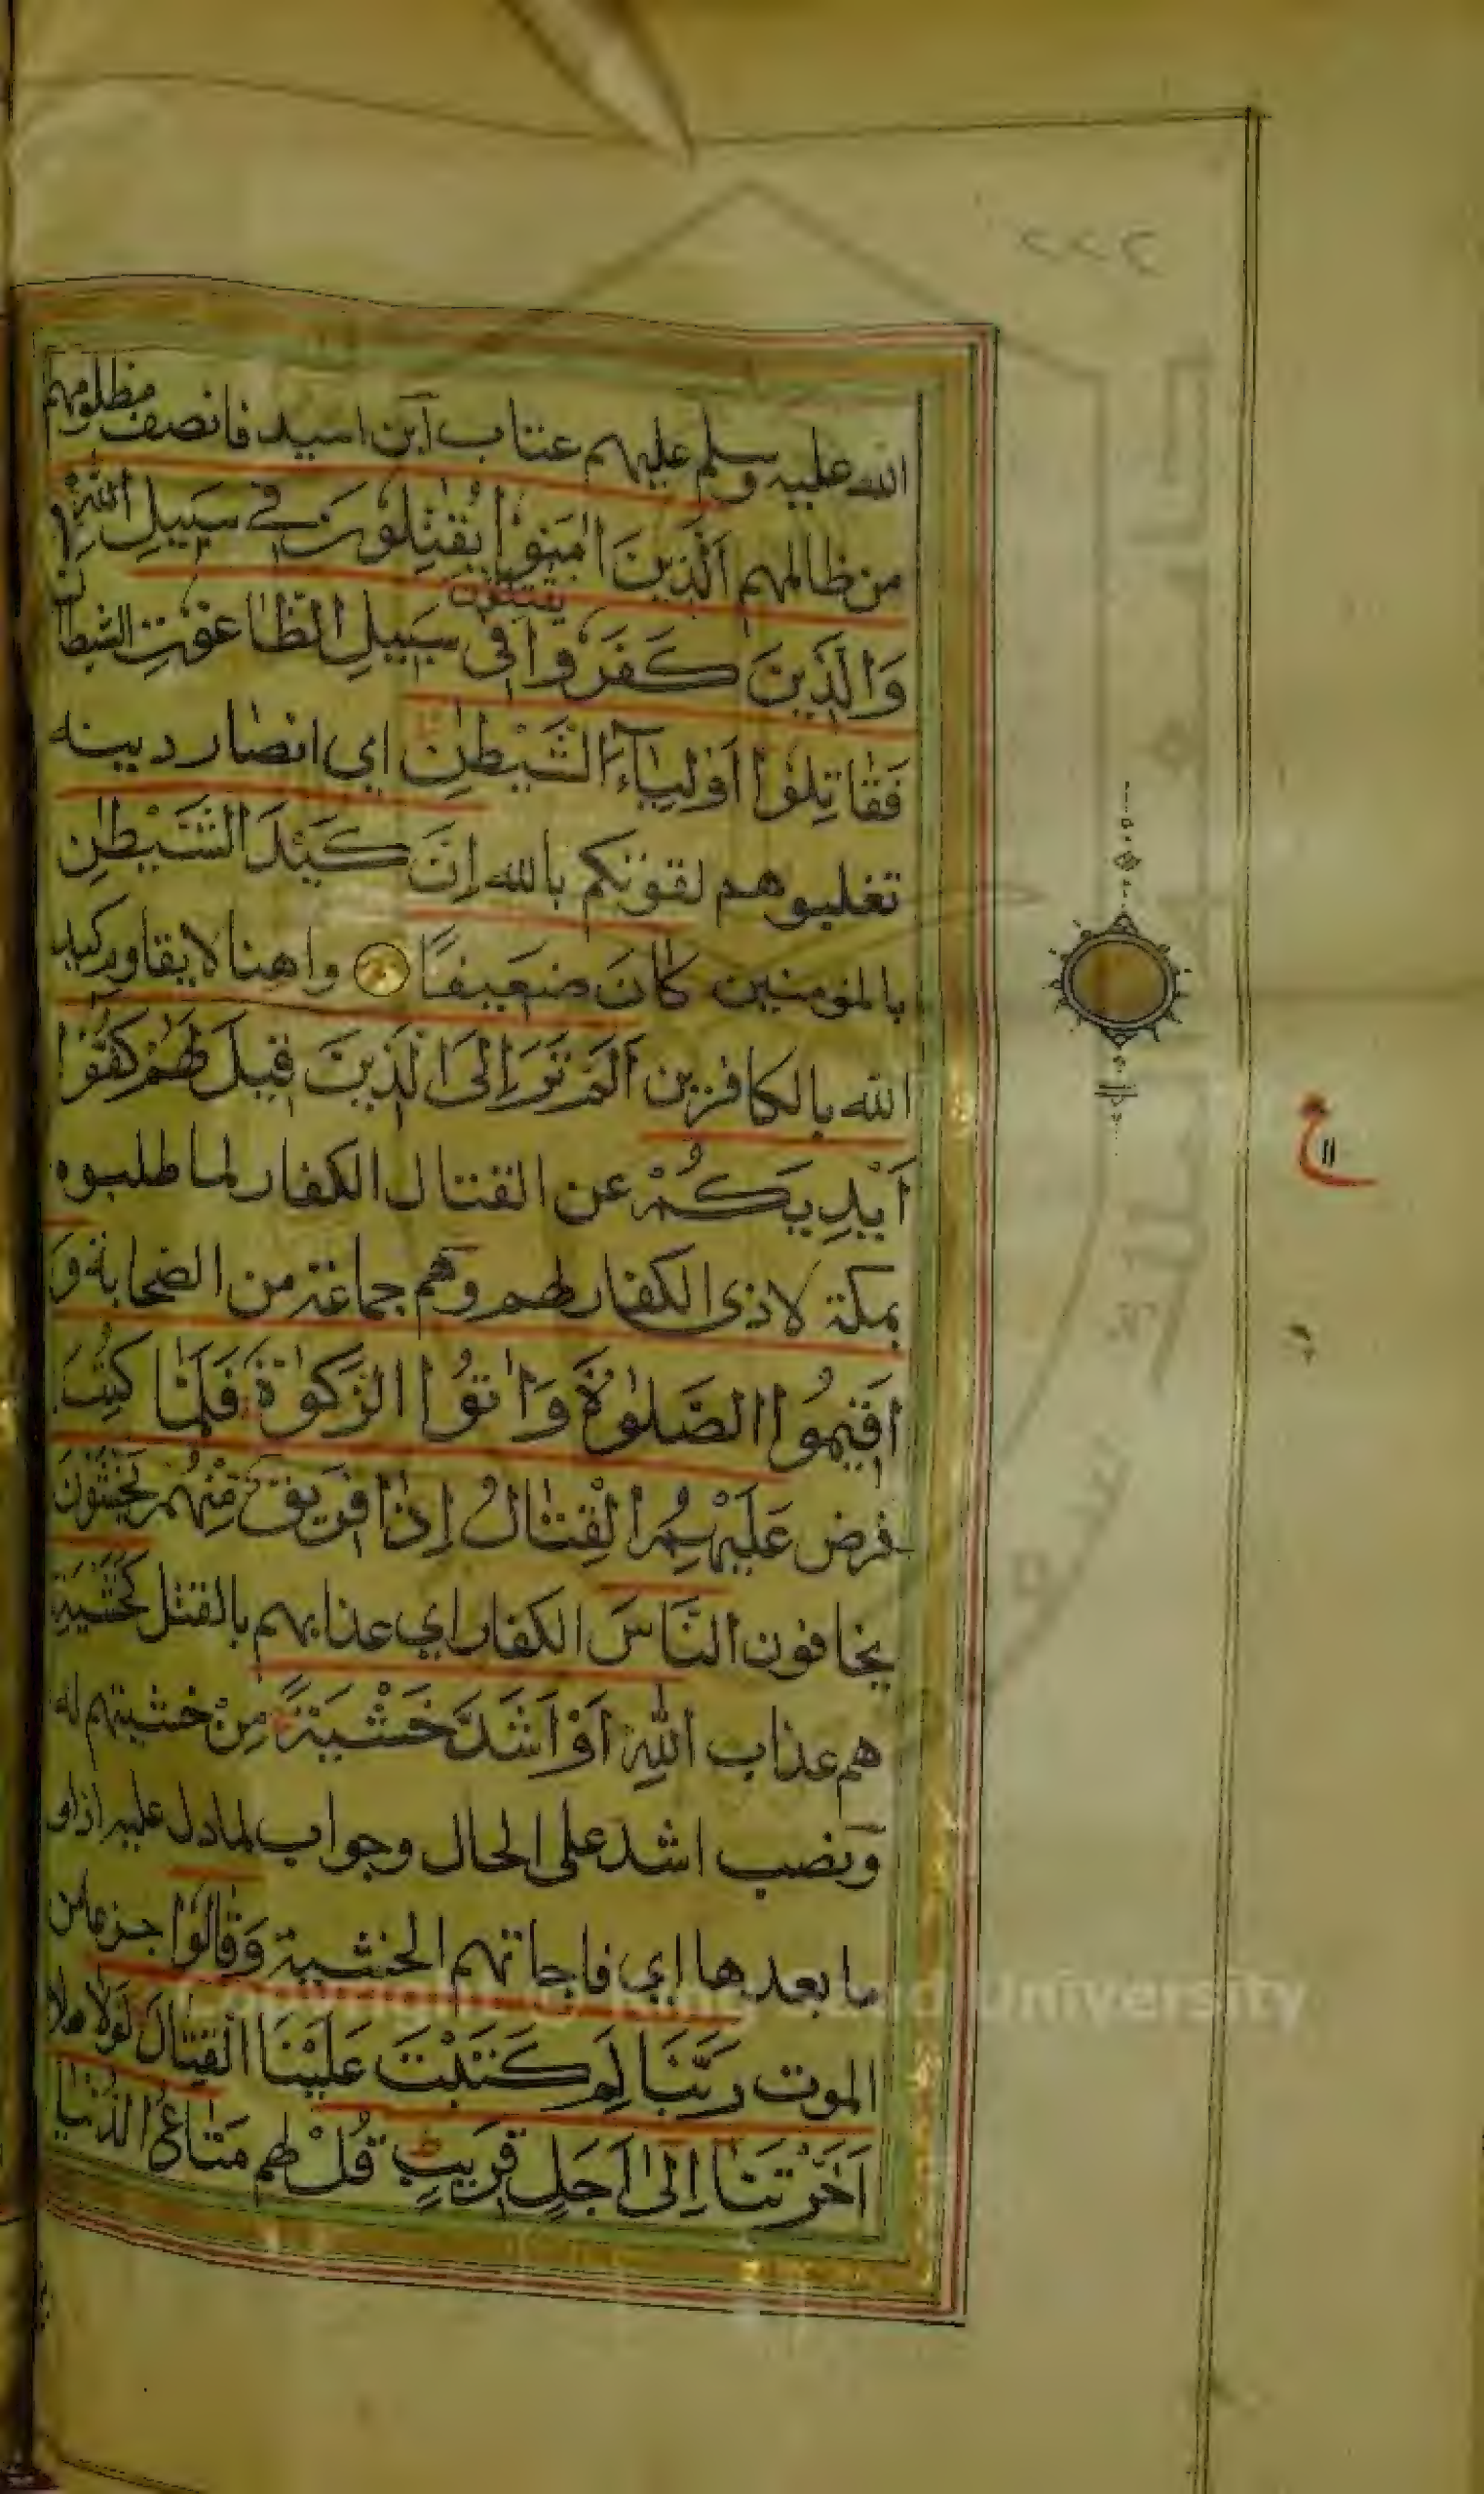 ٢٢٢
الله عليه وسلم عليهم عتاب ابن اسيد فانصف مظلومهم
من ظالمهم اَلَّذِينَ اٰمَنُوا يُقَاتِلُونَ فِي سَبِيلِ اللهِ
يقتلون
وَالَّذِينَ كَفَرُوا فِي سَبِيلِ الطَّاغُوتِ الشيطان
فَقَاتِلُوا اَوْلِيَاءَ الشَّيْطٰنِ اي انصار دينه
تغلبوهم لقوتكم بالله اِنَّ كَيْدَ الشَّيْطٰنِ
بالمؤمنين كَانَ ضَعِيفًا واهنا لا يقاوم كيد
الله بالكافرين اَلَمْ تَرَ اِلَى الَّذِينَ قِيلَ لَهُمْ كُفُّوا
اَيْدِيَكُمْ عن القتال الكفار لما طلبوه
بمكة لاذى الكفار لهم وهم جماعة من الصحابة وَ
اَقِيمُوا الصَّلٰوةَ وَاٰتُوا الزَّكٰوةَ فَلَمَّا كُتِبَ
فرض عَلَيْهِمُ الْقِتَالُ اِذَا فَرِيقٌ مِنْهُمْ يَخْشَوْنَ
يخافون النَّاسَ الكفار اي عذابهم بالقتل كَخَشْيَةِ
هم عذاب اللهِ اَوْ اَشَدَّ خَشْيَةً مِنْ خشيتهم له
ونصب اشد على الحال وجواب لما دل عليه اذا و
ما بعدها اي فاجاتهم الخشية وَقَالُوا جزعا من
الموت رَبَّنَا لِمَ كَتَبْتَ عَلَيْنَا الْقِتَالَ لَوْلَا هلا
اَخَّرْتَنَا اِلٰى اَجَلٍ قَرِيبٍ قُلْ لهم مَتَاعُ الدُّنْيَا
ع
١١
Copyright © King Saud University